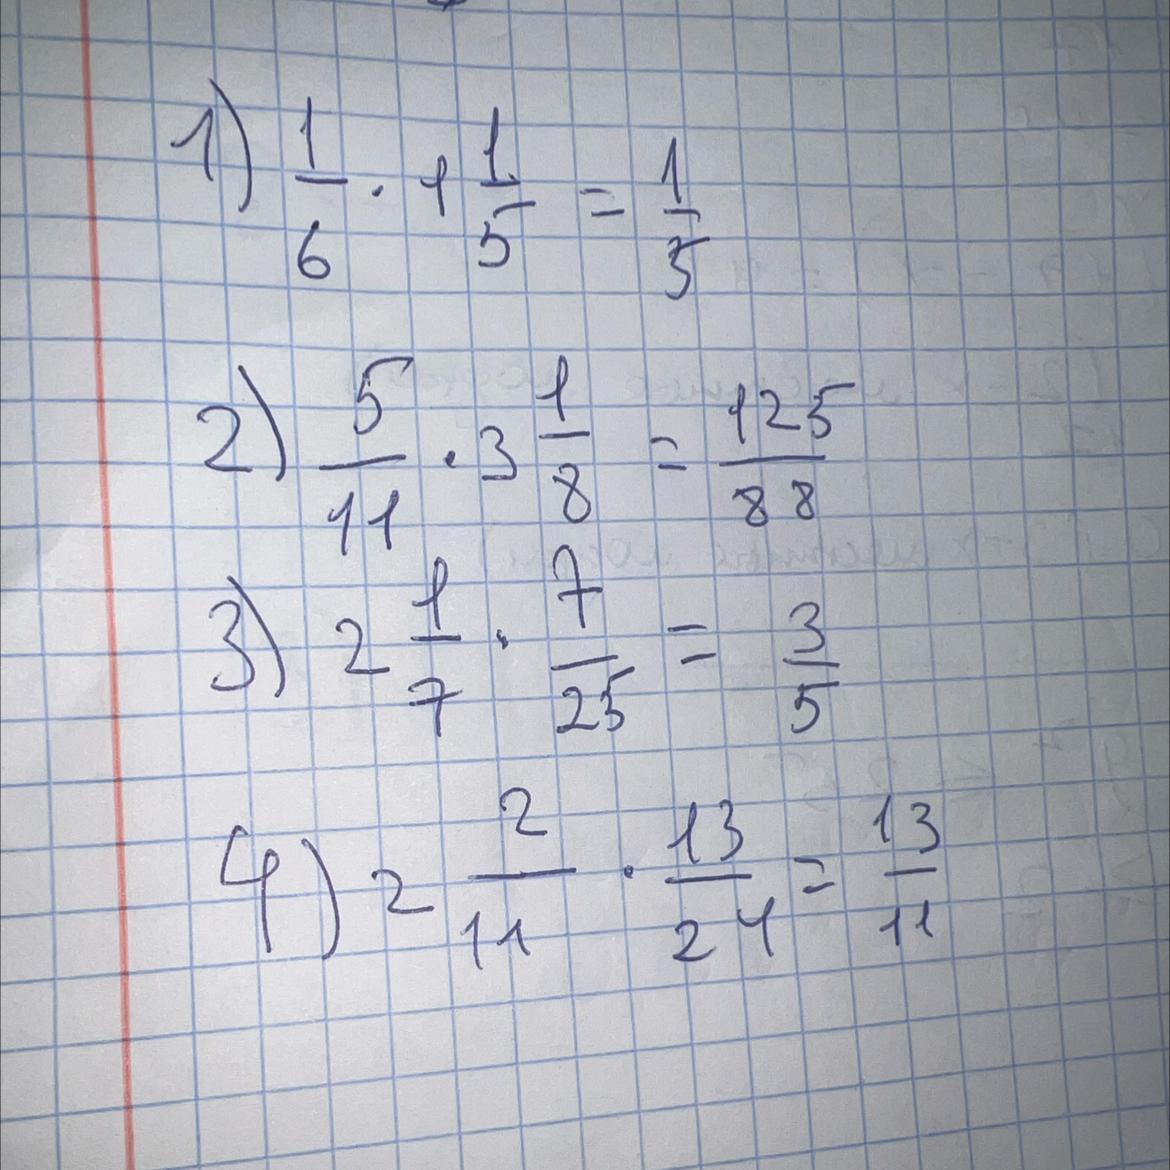 1) 1/6 · 1 1/5 = 1/5
2) 5/11 · 3 1/8 = 125/88
3) 2 1/7 · 7/25 = 3/5
4) 2 2/11 · 13/24 = 13/11